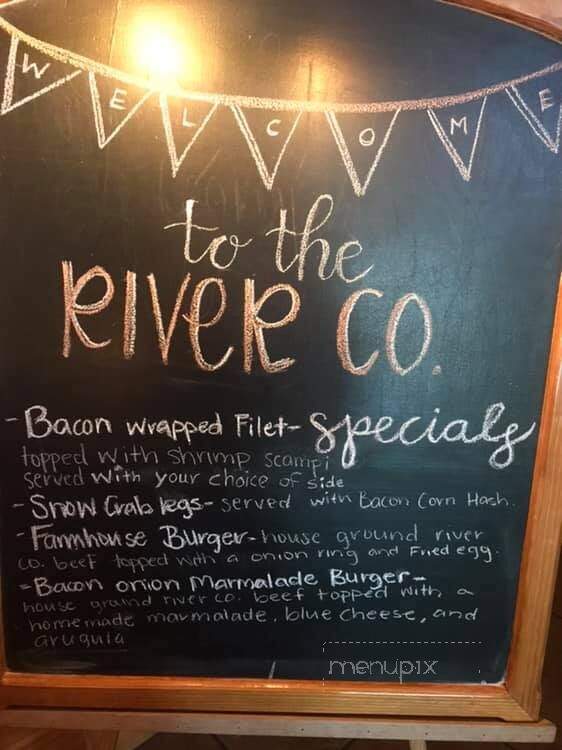 WELCOME
to the
RIVER CO.
specials
- Bacon wrapped Filet-
topped with shrimp scampi
served with your choice of side
- Snow Crab legs- served with Bacon Corn Hash.
- Farmhouse Burger- house ground river
co. beef topped with a onion ring and Fried egg.
- Bacon onion Marmalade Burger-
house ground river co. beef topped with a
homemade marmalade, blue cheese, and
arugula
menupix